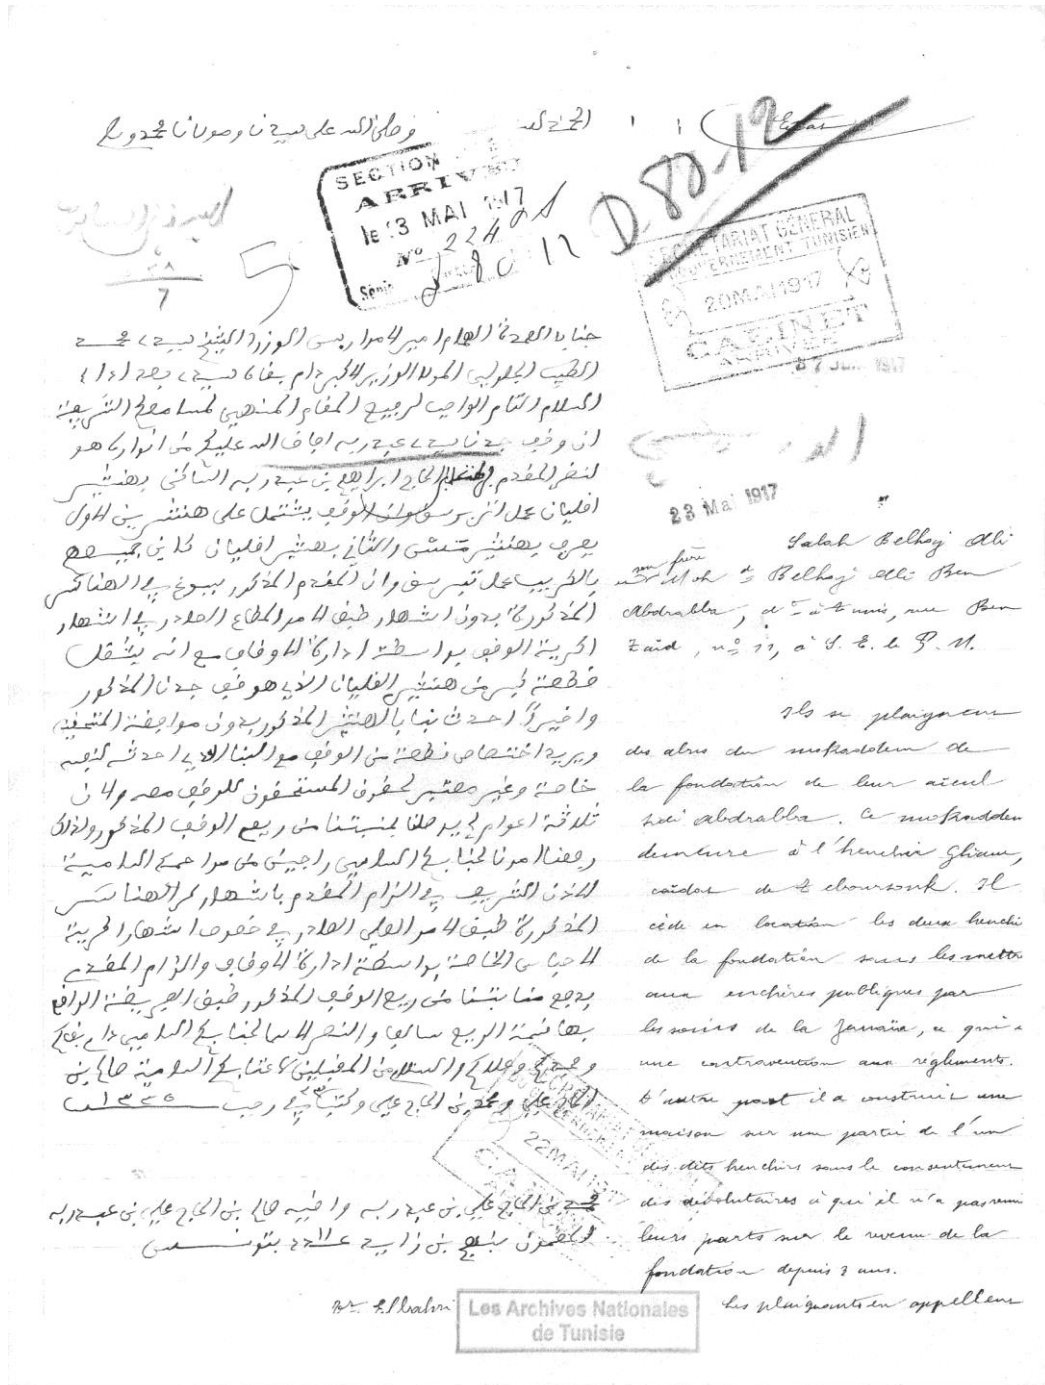 الحمد لله
وصلى الله على سيدنا ومولانا محمد وسلم
SECTION
ARRIVÉE
le 23 MAI 1917
No 2240
D 80-12
D. 88-12
SECRÉTARIAT GÉNÉRAL
GOUVERNEMENT TUNISIEN
20 MAI 1917
CABINET
ARRIVÉE
1917
23 Mai 1917
جناب العمدة الهمام امير الامرا ربيس الوزرا الشيخ سيدي محمد
الطيب الجلولي المولى الوزير الاكبر دام بقاه سيدي بعد اداء
السلام التام الواجب لرفيع المقام المنهي لمسامعكم الشريفة
ان وقف جدنا سيدي عبد ربه افاض الله عليكم من انواره هو
لنظر المقدم الحاج ابراهيم بن عبد ربه الساكن بهنشير
افليان عمل تبرسق وان الوقف يشتمل على هنشيرين الاول
يعرف بهنشير والثاني بهنشير افليان كاين جميعهم
عمل تبرسق وان المقدم المذكور يسوغ في الهناشر
المذكورة بدون اشهار طبق الامر المطاع الصادر في اشهار
اكرية الوقف بواسطة ادارة الاوقاف مع انه يشغل
قطعة كبرى من هنشير افليان الذي هو وقف جدنا المذكور
واخيرا احدث بنا بالهنشير المذكور بدون موافقة المستحقين
ويريد اختصاص قطعة من الوقف مع البنا الذي احدثه لنفسه
خاصة وغير معتبر لحقوق المستحقين للوقف معه والان
ثلاثة اعوام لم يدفع لنا منابنا من ريع الوقف المذكور ولذلك
رفعنا امرنا لجنابكم السامي راجين من مراحمكم السامية
الاذن الشريف في الزام المقدم باشهار كرا الهناشر
المذكورة طبق الامر العلي الصادر في خصوص اشهار اكرية
الاحباس الخاصة بواسطة ادارة الاوقاف والزام المقدم
بدفع منابنا من ريع الوقف المذكور طبق الفريضة الواقع
بها قسمة الريع سالفا والنظر الاسما لجنابكم السامي دام بقاكم
ومجدكم وعلاكم والسلام من المقبلين لاعتابكم السامية صالح بن
الحاج علي ومحمد بن الحاج علي وكتب في رجب ١٣٣٥
محمد بن الحاج علي بن عبد ربه واخيه صالح بن الحاج علي بن عبد ربه
القاطنون بنهج بن زايد عدد ١١ بتونس
Salah Belhaj Ali
son frère Moh d Belhaj Ali Ben
Abdrabba, dt à Tunis, rue Ben
Zaïd, no 11, à S. E. le P. M.
Ils se plaignent
des abus du mokaddem de
la fondation de leur aïeul
Sidi Abdrabba. Ce mokaddem
demeure à l'henchir Gliane,
caïdat de Teboursouk. Il
cède en location les deux henchirs
de la fondation sans les mettre
aux enchères publiques par
les soins de la Jamaïa, ce qui a
une contravention aux règlements.
D'autre part il a construit une
maison sur une partie de l'un
des dits henchirs sans le consentement
des dévolutaires à qui il n'a pas remis
leurs parts sur le revenu de la
fondation depuis 3 ans.
Les plaignants en appellent
22 MAI 191
Les Archives Nationales
de Tunisie